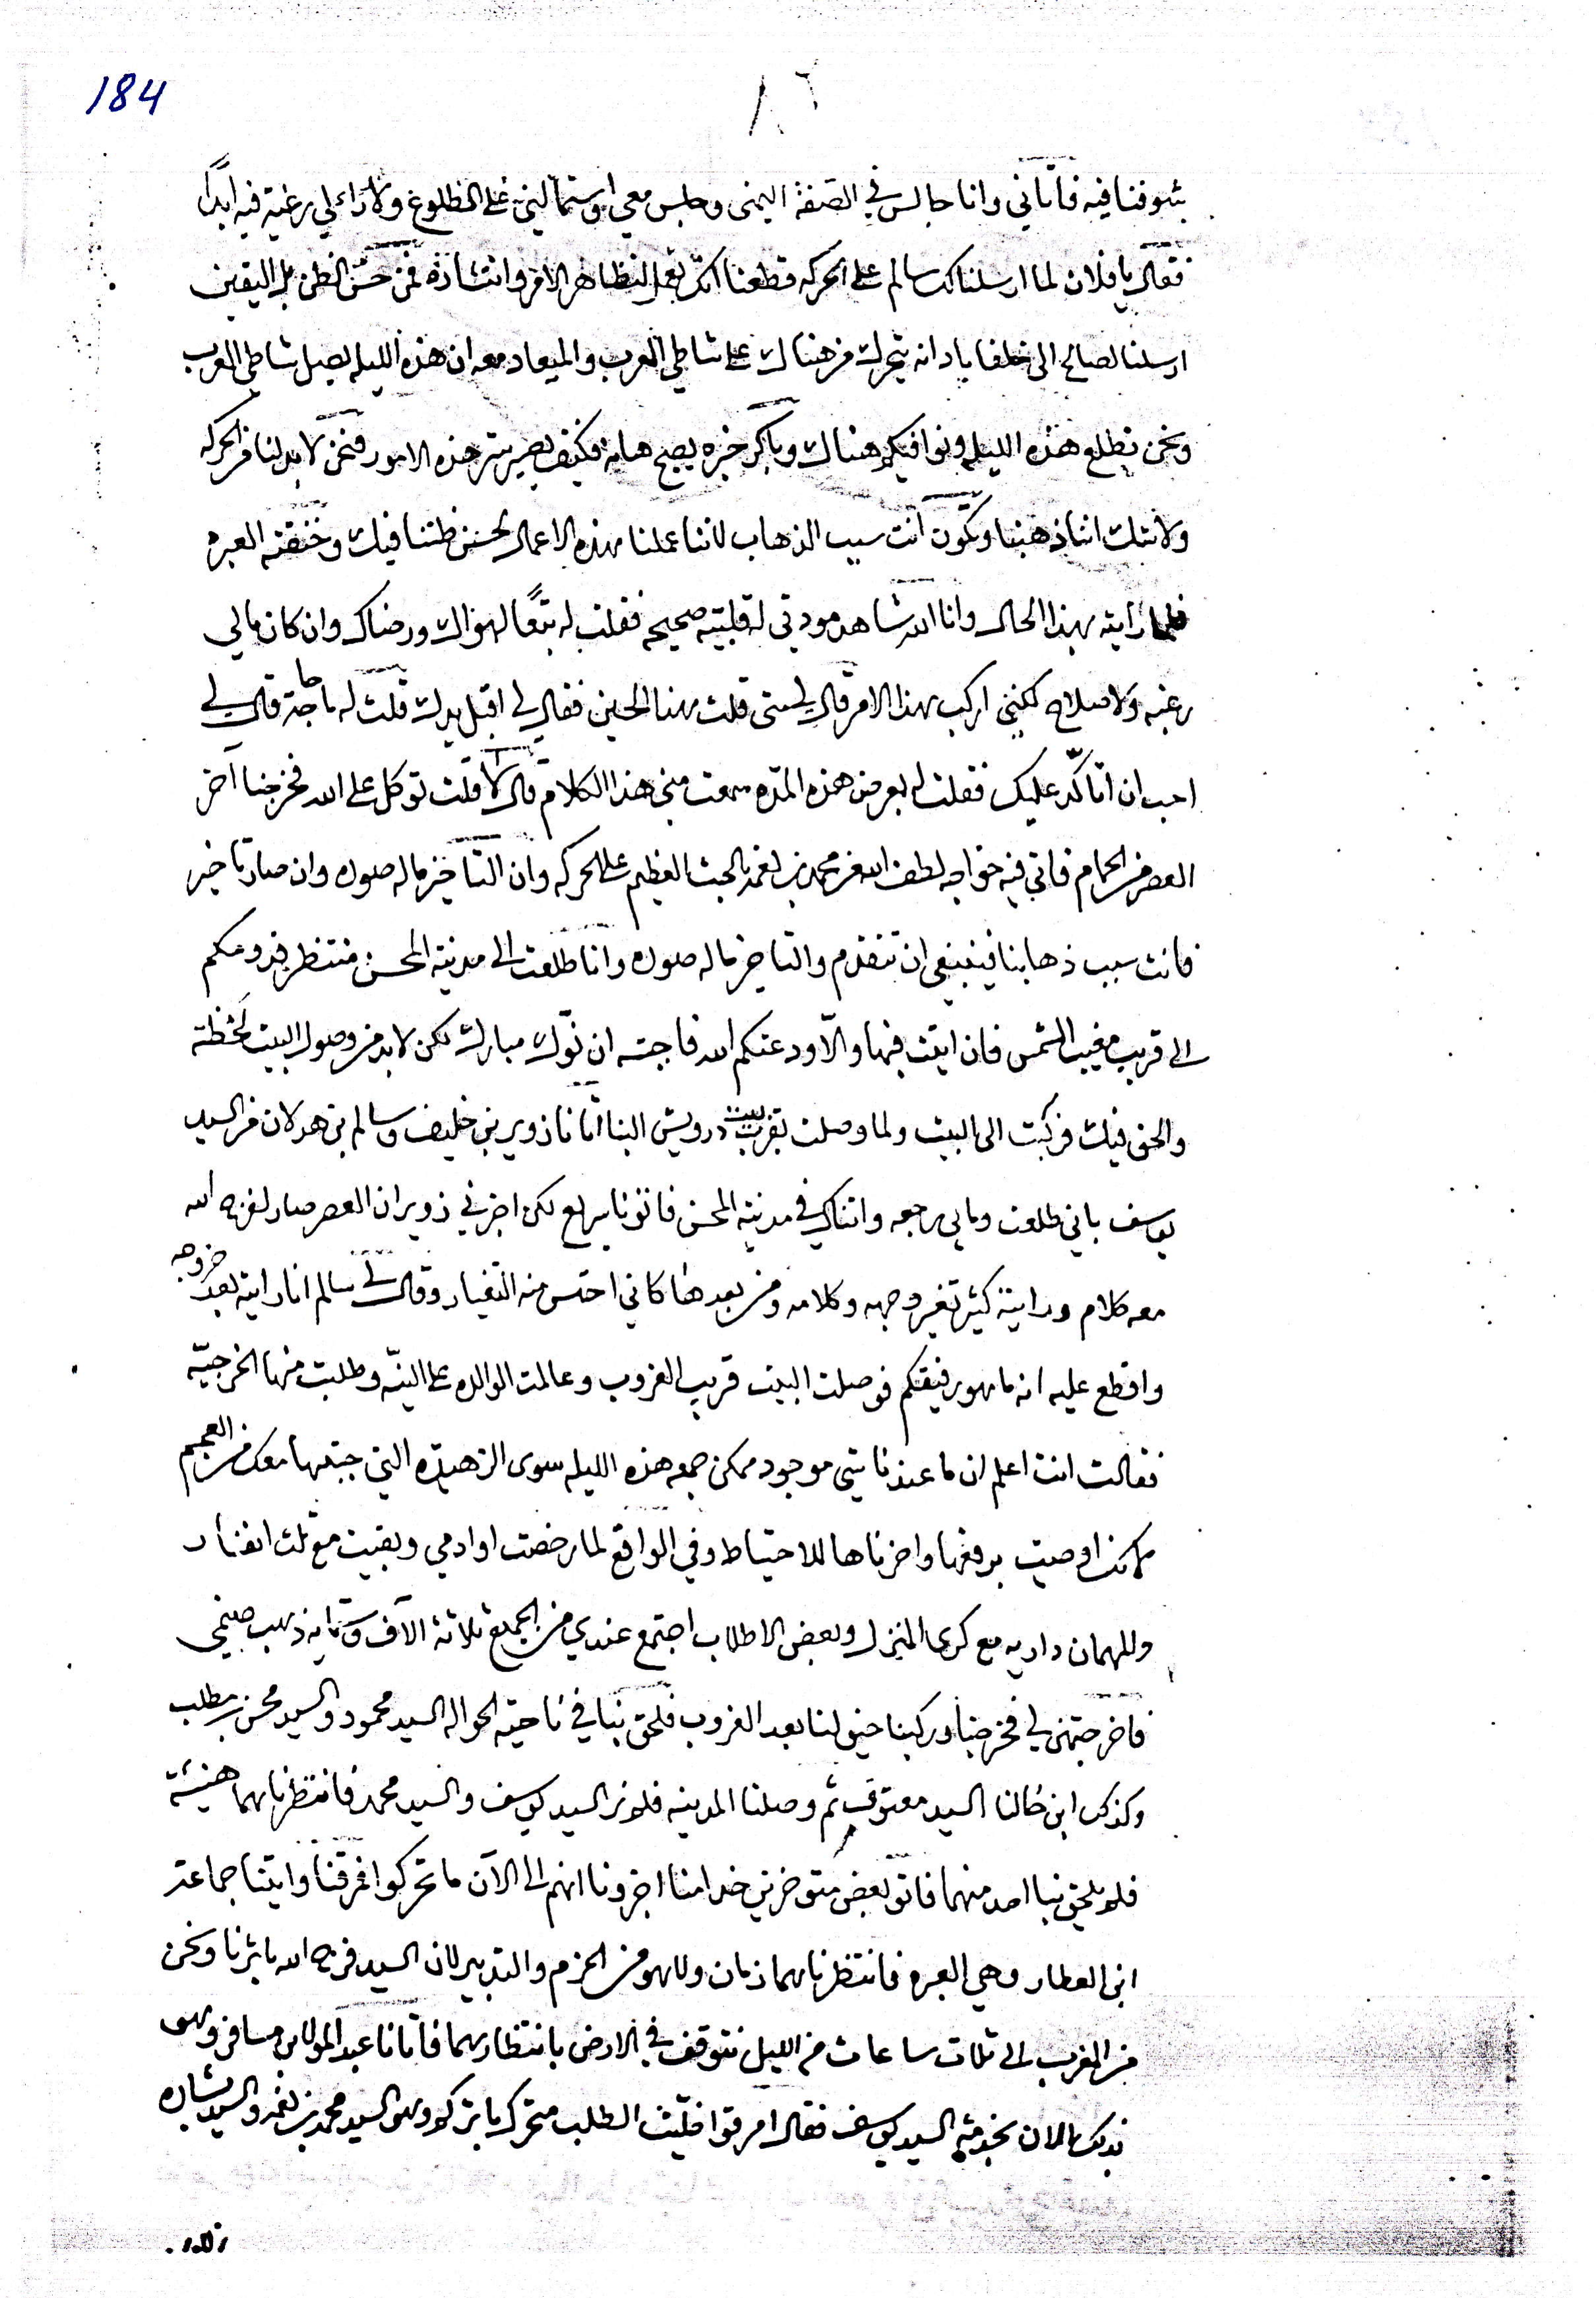 184
٨٦
بشوفنا فيه فاتاني وانا جالس في الصفة اليمنى وجلس معي واستمالني على الطلوع ولا راء لي رغبة فيه ابدًا
فقال يا فلان لما ارسلنا لك سالم على الحركه قطعنا انك بعد تظاهر الامر وانتشاره فمن حسن الظن بل اليقين
ارسلنا لصالح الى خلفاباد انه يتحرك من هناك على شاطي العرب والميعاد معه ان هذه الليله يصل شاطي العرب
ونحن نطلع هذه الليله ونوافيكم هناك وباكر خبره يصبح هنا فكيف يصير ستر هذه الامور فنحن لا بد لنا من الحركه
ولا شك اننا ذهبنا وتكون انت سبب الذهاب لاننا عملنا بهذه الاعمال لحسن ظننا فيك وخنقته العبره
فلما رايته بهذا الحال وانا الله شاهد مودتي له قلبيه صحيحه فقلت له تبعًا لهواك ورضاك وان كان مالي
رغبه ولا صلاح لكنني اركب بهذا الامر قال لي متى قلت بهذا الحين فقال لي اقبل يدك قلت له ما حاجة قال لي
احب ان اتاكّد عليك فقلت له بعرض هذه المدّه سمعت مني هذا الكلام قال لا قلت توكل على الله فخرجنا آخر
العصر من الحمام فاتي فيه خواجه لطف الله من محمد بن لغمد بالحث العظيم على الحركه وان التاخير ماله صلوه وان صار تاخير
فانت سبب ذهابنا فينبغي ان تتقدم والتاخير ماله صلوه وانا طلعت الى مدينة المحسن منتظر قدومكم
الى قريب مغيب الشمس فان اتيت فبها والّا ودعتكم الله فاجبته ان توّك مبارك لكن لا بد من وصول البيت لحظة
والحق فيك فركبت الى البيت ولما وصلت بقرب بيت درويش البنا اتانا زوير بن خليف وسالم بن هدلان من السيد
يوسف باني طلعت ومالي رجعه واتناك في مدينة المحسن فاتونا سريع لكن اخبرني زوير ان العصر صار لفرج الله
معه كلام ورايته كثير تغير وجهه وكلامه ومن بعدها كاني احتس منه التغيار وقال لي سالم انا رايته بعد خروجه
واقطع عليه انه ما هو رفيقكم فوصلت البيت قريب الغروب وعالمت الوالده على النيّه وطلبت منها الخرجيّه
فقالت انت اعلم ان ما عندنا شي موجود ممكن جمعه هذه الليله سوى الزهيده التي جبتها معك من العجم
لانك اوصيت برفعها واخرناها للاحتياط وفي الواقع لما رخصت اوادمي وبقيت مع ثلث انفار
وللمهمان داريه مع كرى المنزل وبعض الاطلاب اجتمع عندي من الجميع ثلاثة الآف وثمانيه ذهب صنمي
فاخرجتهن لي فخرجنا وركبنا خيولنا بعد الغروب فلحق بنا في ناحية الحواله السيد محمود والسيد محسن بن مطلب
وكذلك ابن خالنا السيد معتوق ثم وصلنا المدينه فلم نر السيد يوسف والسيد محمد فانتظرناهما هنيئة
فلم يلحق بنا احد منهما فاتو بعض متوخرين خدامنا اخبرونا انهم الى الآن ما تحركوا فرقنا واتينا جماعة
ابن العطار وهي العبره فانتظرناهما زمان ولا هو من الحزم والتدبير لان السيد فرج الله باثرنا ونحن
من المغرب الى ثلاث ساعات من الليل نتوقف في الارض بانتظارهما فاتانا عبد المولى بن مسافر وهو
بذلك الان بخدمة السيد يوسف فقال امرقوا فليت الطلب متحرك باثركم وهو السيد محمد بن لغمد والسيد بشاره